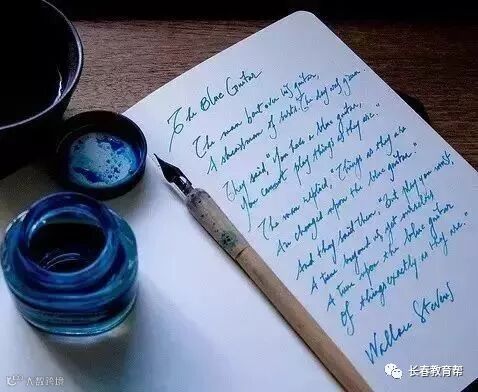 The Blue Guitar
The man bent over his guitar,
A shearsman of sorts. The day was green.
They said, "You have a blue guitar,
You cannot play things as they are."
The man replied, "Things as they are
Are changed upon the blue guitar."
And they said then, "But play you must,
A tune beyond us, yet ourselves
A tune upon the blue guitar
Of things exactly as they are."
Wallace Stevens
大数跨境
长春教育帮